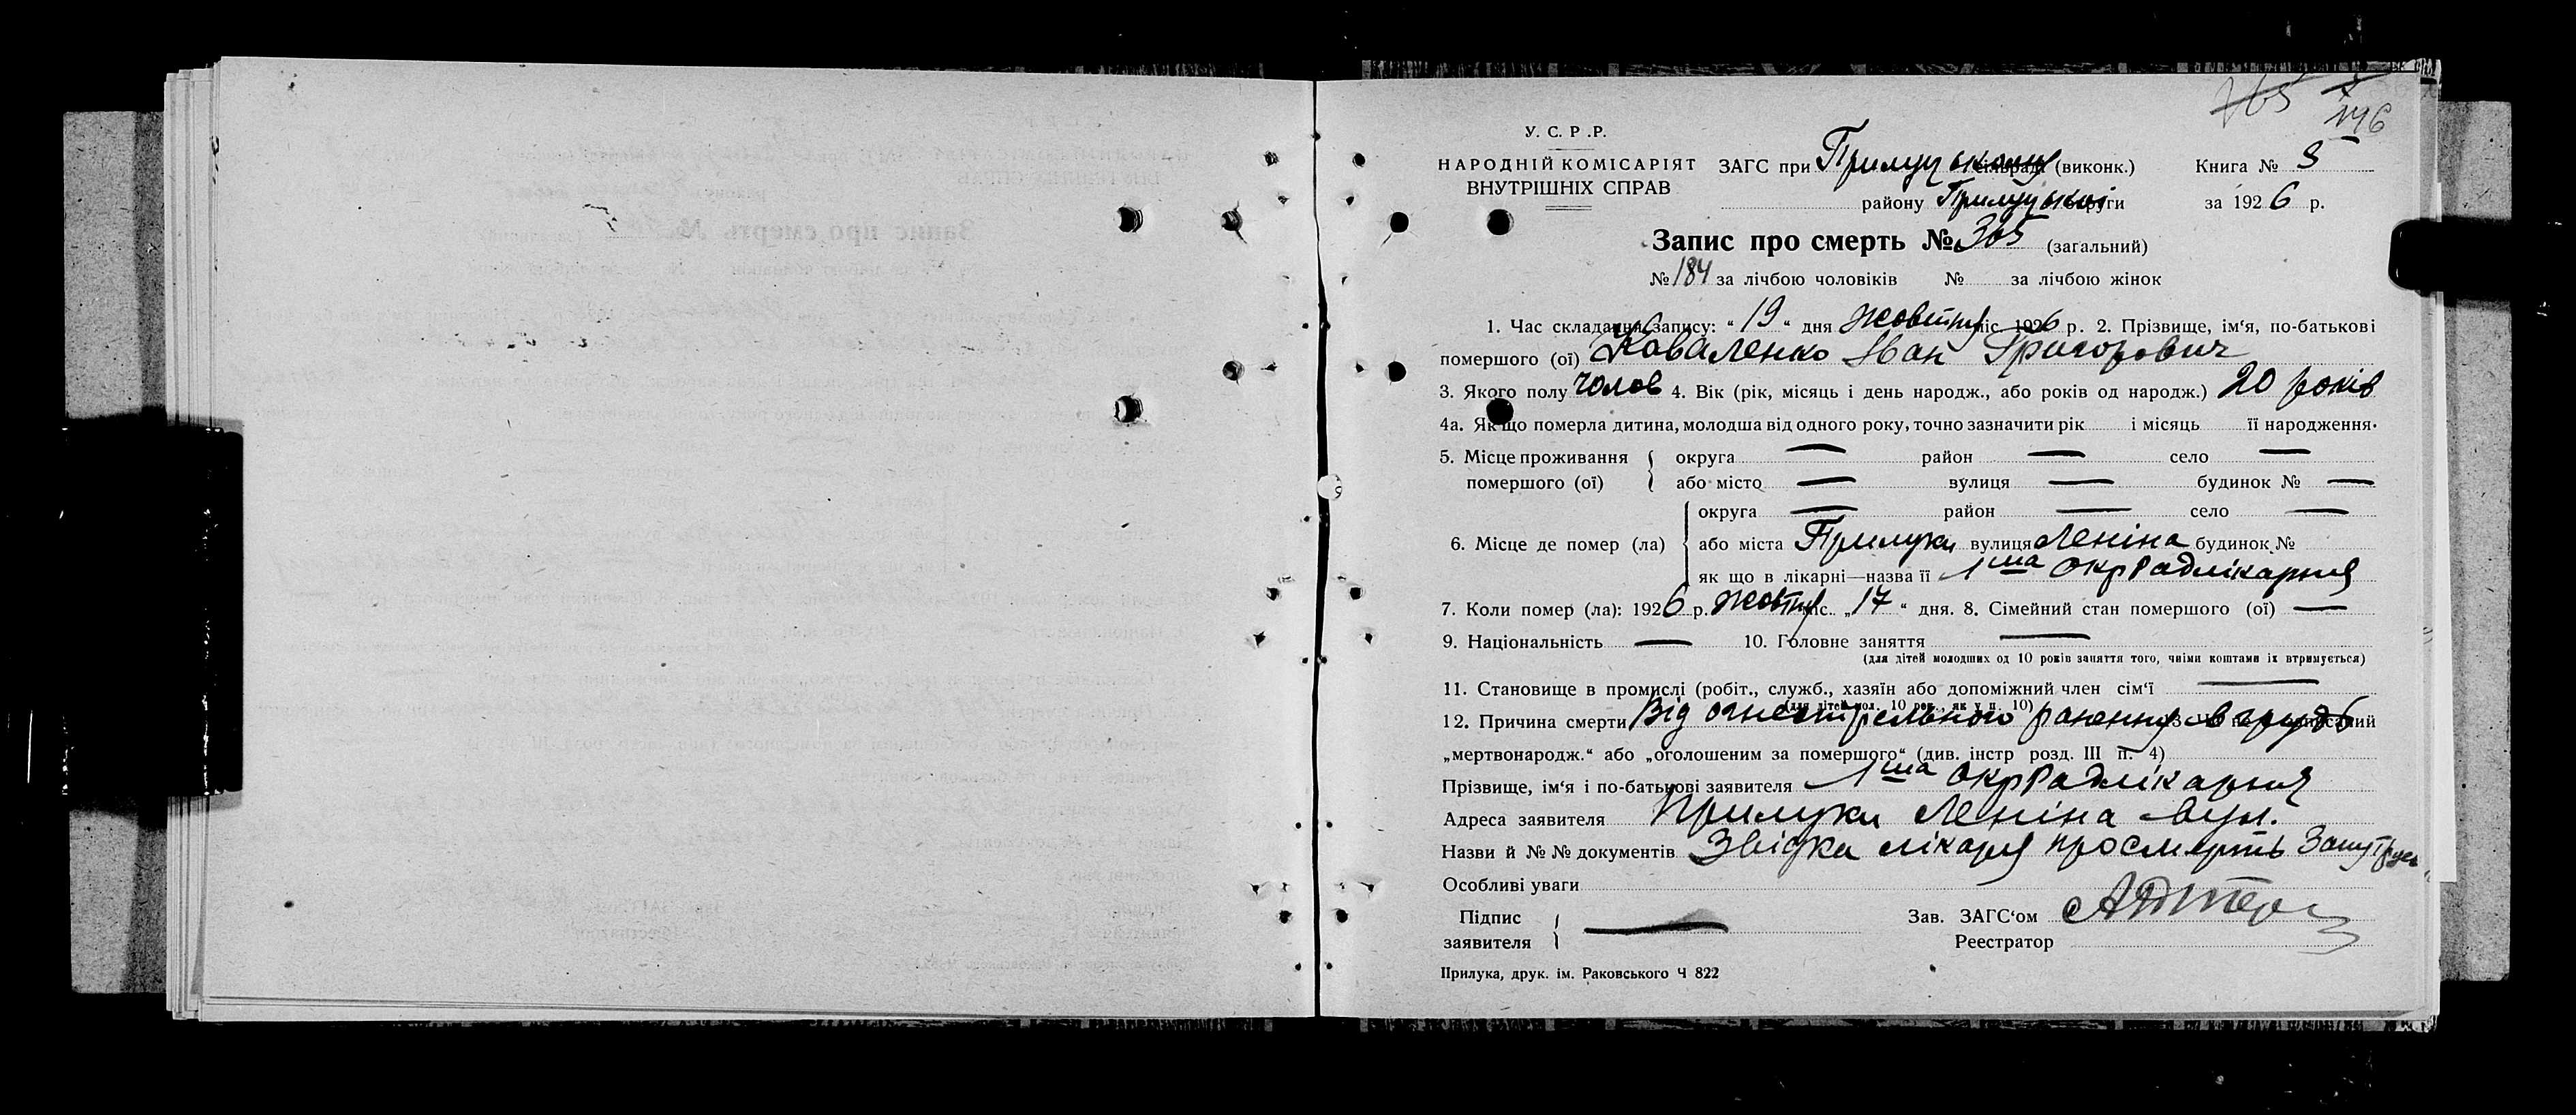 765
146
У. С. Р .Р.
НАРОДНІЙ КОМІСАРІЯТ
ВНУТРІШНІХ СПРАВ
ЗАГС при Прилуцькому сільраді (виконк.) Книга № 3
району Прилуцької округи за 1926 р.
Запис про смерть № 305 (загальний)
№ 184 за лічбою чоловіків № за лічбою жінок
1. Час складання запису: " 19 " дня Жовтня міс. 1926 р. 2. Прізвище, ім'я, по-батькові
помершого (ої) Коваленко Іван Григорович
3. Якого полу чолов 4. Вік (рік, місяць і день народж., або років од народж.) 20 років
4а. Якщо померла дитина, молодша від одного року, точно зазначити рік і місяць її народження.
5. Місце проживання помершого (ої) { округа — район — село —
або місто — вулиця — будинок № —
6. Місце де помер (ла) { округа — район — село —
або міста Прилуки вулиця Леніна будинок №
як що в лікарні—назва її 1ша Окррадлікарня
7. Коли помер (ла): 1926 р. Жовтня міс. „17" дня. 8. Сімейний стан помершого (ої) —
9. Національність — 10. Головне заняття —
(для дітей молодших од 10 років заняття того, чиїми коштами їх втримується)
11. Становище в промислі (робіт., служб., хазяїн або допоміжний член сім'ї —
(для дітей мол. 10 рок., як у п. 10)
12. Причина смерти Від огнестрельного ранення в грудь
„мертвонародж." або „оголошеним за помершого" (див. інстр розд. III п. 4)
Прізвище, ім'я і по-батькові заявителя 1ша Окррадлікарня
Адреса заявителя Прилуки Леніна вул.
Назви й №№ документів Звідка лікаря про смерть
Особливі уваги
Підпис заявителя } —
Зав. ЗАГС'ом
Реестратор
Прилука, друк. ім. Раковського Ч 822